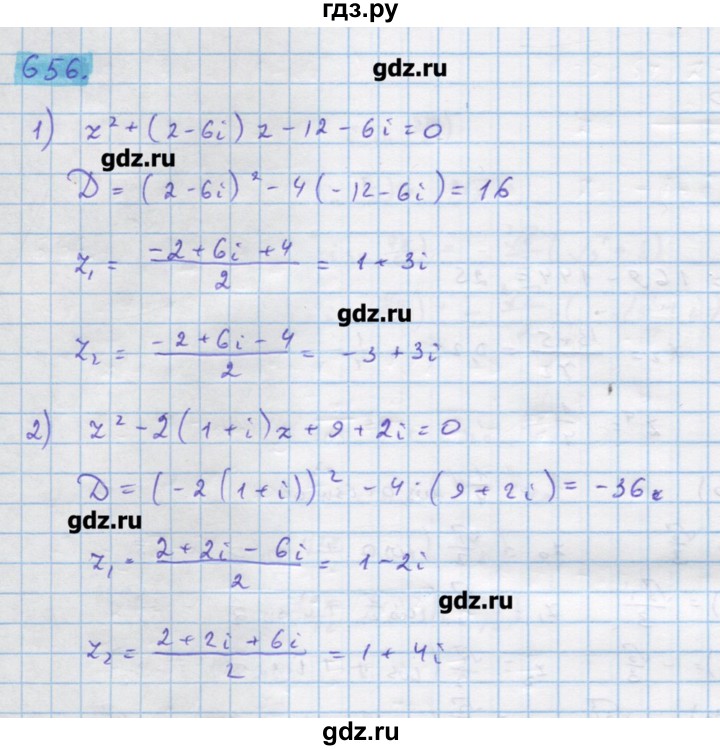 гдз.ру
656.
gdz.ru
1) z² + (2-6i) z - 12 - 6i = 0
gdz.ru
D = (2-6i)² - 4(-12-6i) = 16
z₁ = (-2+6i+4)/2 = 1+3i
gdz.ru
z₂ = (-2+6i-4)/2 = -3+3i
2) z² - 2(1+i)z + 9 + 2i = 0
D = (-2(1+i))² - 4·(9+2i) = -36
gdz.ru
z₁ = (2+2i-6i)/2 = 1-2i
gdz.ru
z₂ = (2+2i+6i)/2 = 1+4i
gdz.ru